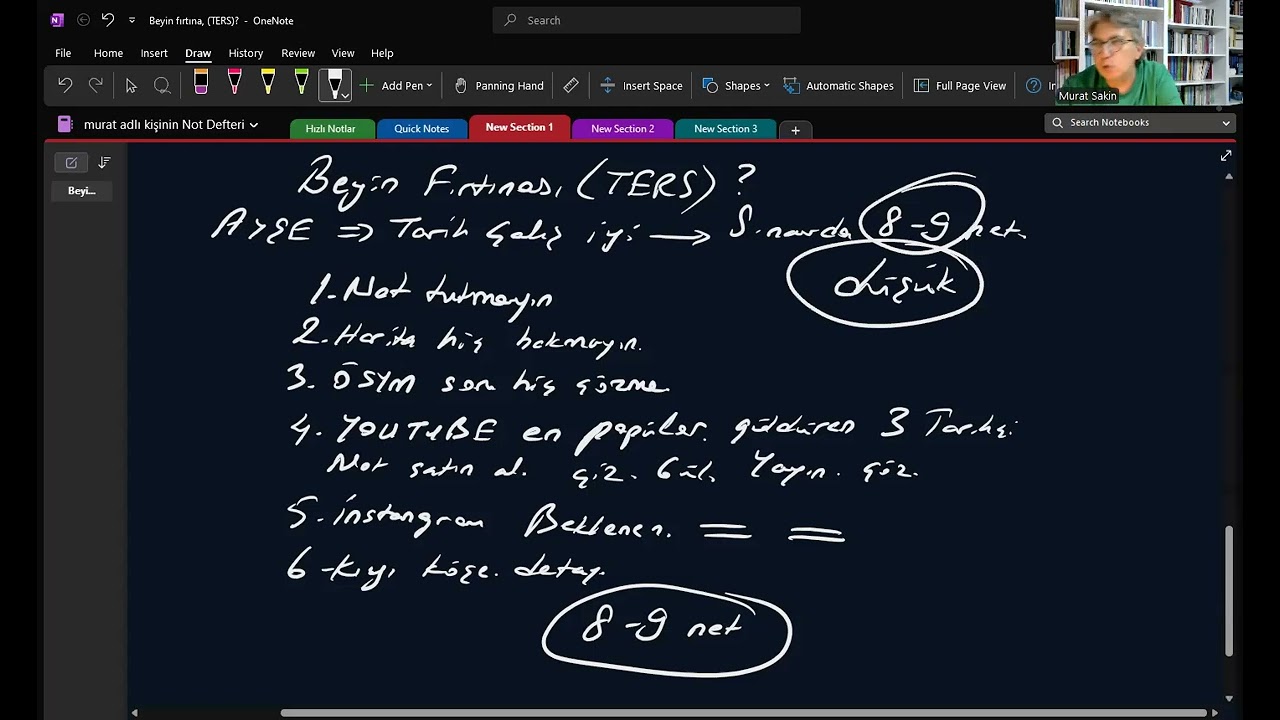 Beyin fırtına, (TERS)? - OneNote
Search
File Home Insert Draw History Review View Help
Add Pen Panning Hand Insert Space Shapes Automatic Shapes Full Page View
Murat Sakin
murat adlı kişinin Not Defteri Hızlı Notlar Quick Notes New Section 1 New Section 2 New Section 3 + Search Notebooks
Beyi...
Beyin Fırtınası (TERS) ?
AYŞE => Tarih çalış iyi → Sınavda 8-9 net.
düşük
1. Not tutmayın
2. Harita hiç bakmayın.
3. ÖSYM soru hiç çözme
4. YOUTUBE en popüler. güldüren 3 Tarihçi
Not satın al. çiz. Gül. Yayın. çöz.
5. instangram Beklenen. = =
6 - kıyı köşe. detay.
8-9 net